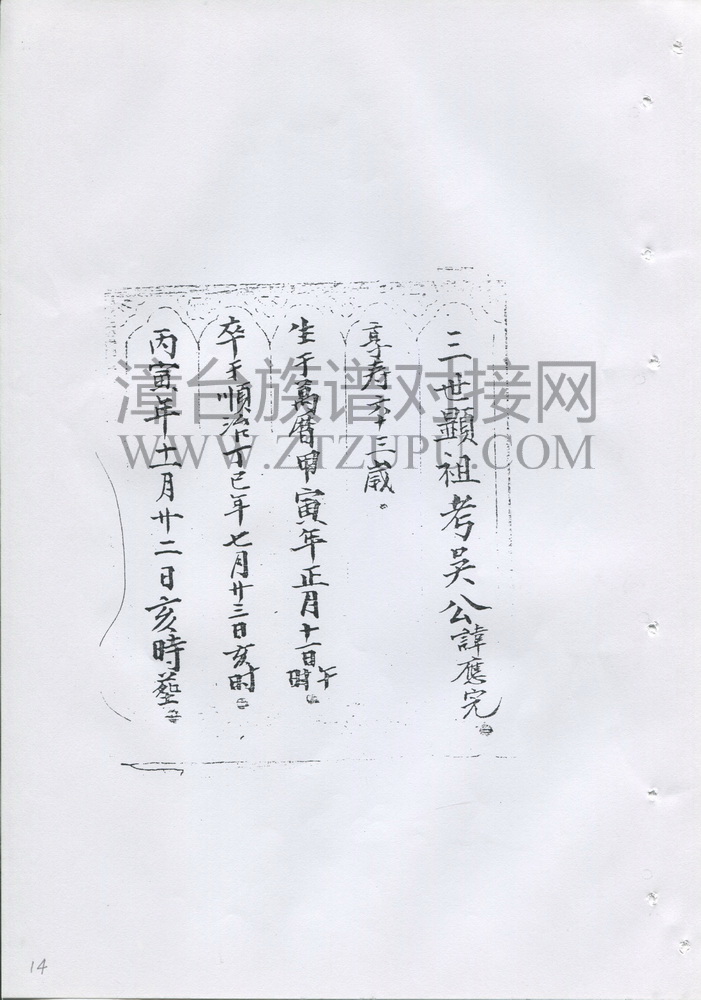 三世顯祖考吳公諱應完。
享寿六十三歲。
生于萬曆甲寅年正月十一日午時。
卒于順治丁巳年七月廿三日亥时。
丙寅年十一月廿二日亥時塟。
漳台族谱对接网
WWW.ZTZUPU.COM
14